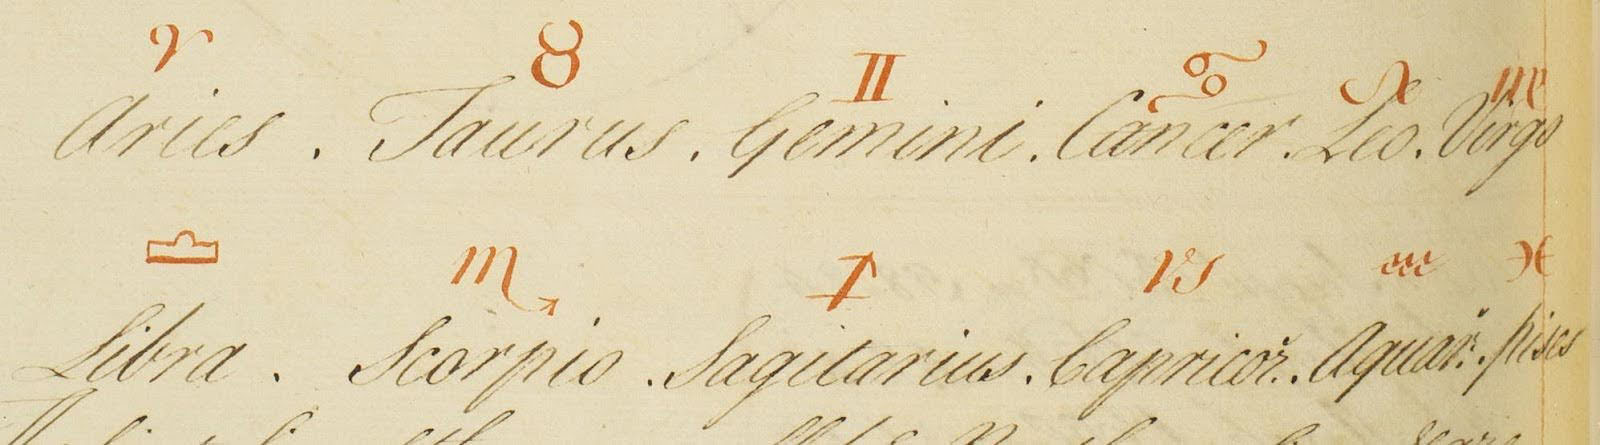 ♈ ♉ ♊ ♋ ♌ ♍
Aries . Taurus . Gemini . Cancer . Leo . Virgo
♎ ♏ ♐ ♑ ♒ ♓
Libra . Scorpio . Sagitarius . Capricor̃ . Aquar̃ . Pisces